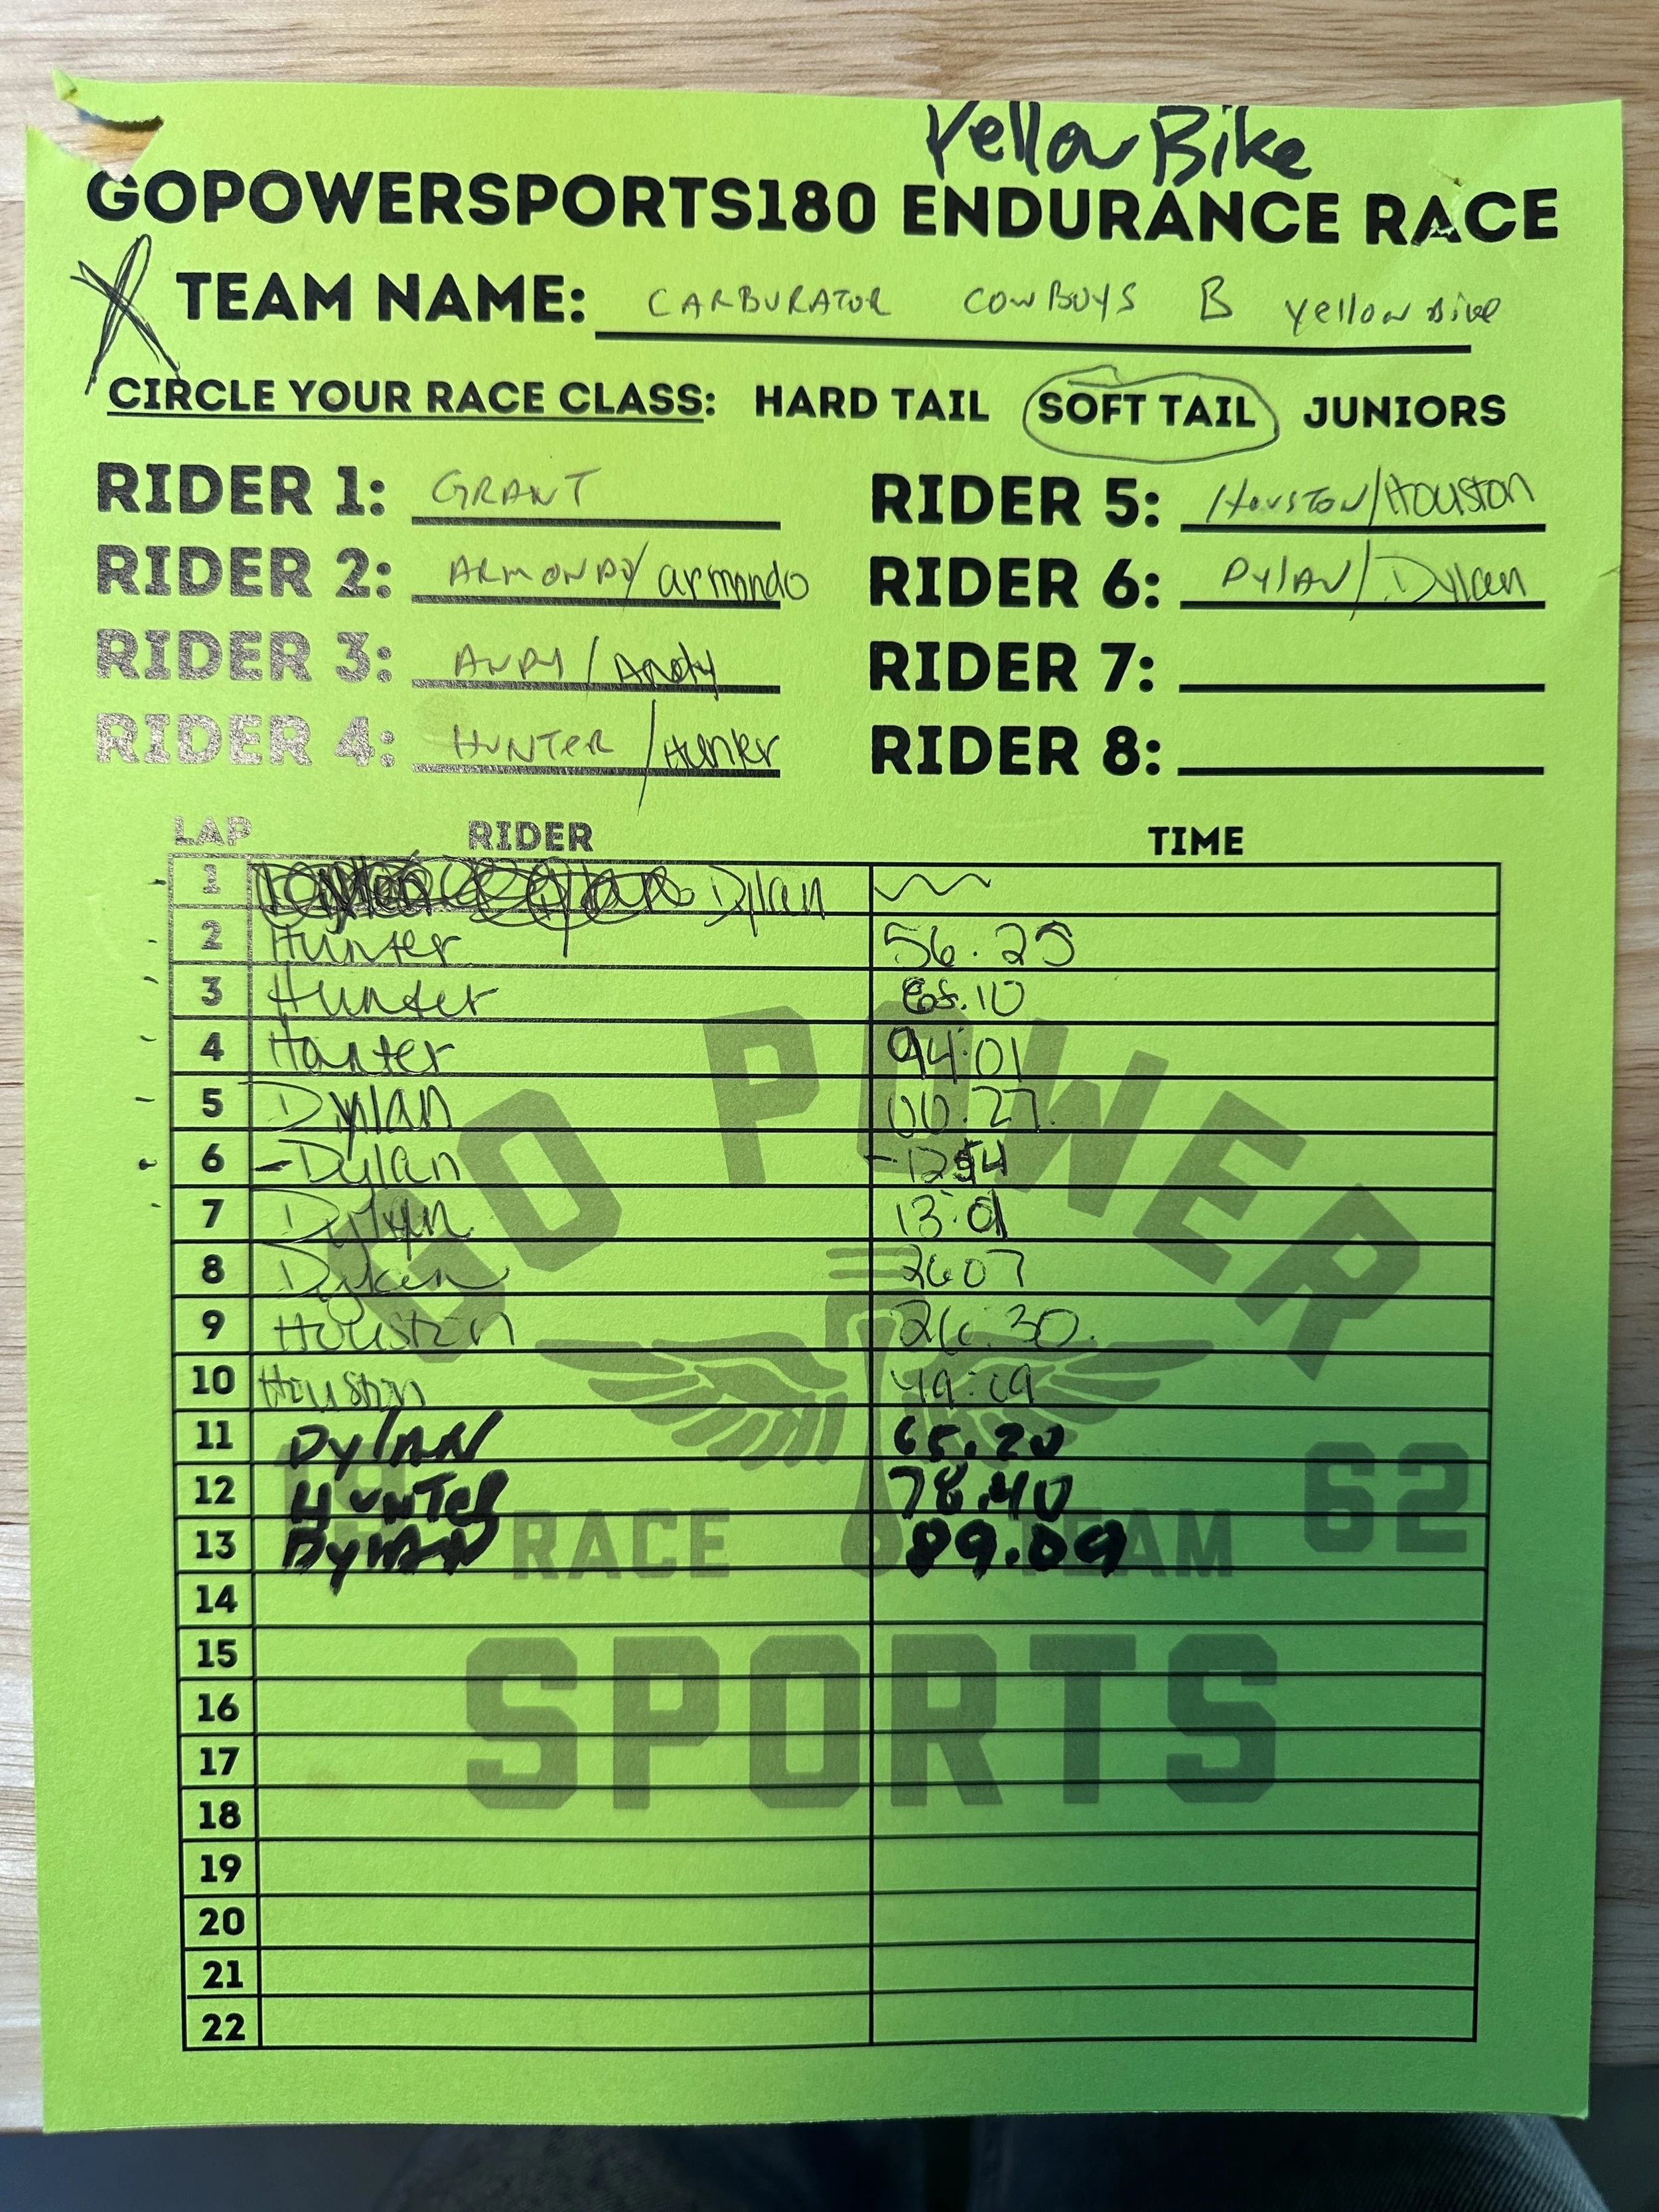 Yellow Bike
GOPOWERSPORTS180 ENDURANCE RACE
X TEAM NAME: CARBURATOR COWBOYS B Yellow Bike
CIRCLE YOUR RACE CLASS: HARD TAIL SOFT TAIL JUNIORS
RIDER 1: GRANT
RIDER 5: HOUSTON/Houston
RIDER 2: ARMONDO/armando
RIDER 6: DYLAN/Dylan
RIDER 3: ANDY/Andy
RIDER 7:
RIDER 4: HUNTER/Hunter
RIDER 8:
LAP RIDER TIME
1 Dylan
2 Hunter 56.25
3 Hunter
4 Hunter 94:01
5 Dylan 00:27
6 -Dylan
7 Dylan
8 Dylan 2607
9 Houston 26:30
10 Houston 49:09
11 DYLAN 65.20
12 HUNTER 78.40
13 DYLAN 89.09
14
15
16
17
18
19
20
21
22
GO POWER
RACE TEAM
62
SPORTS